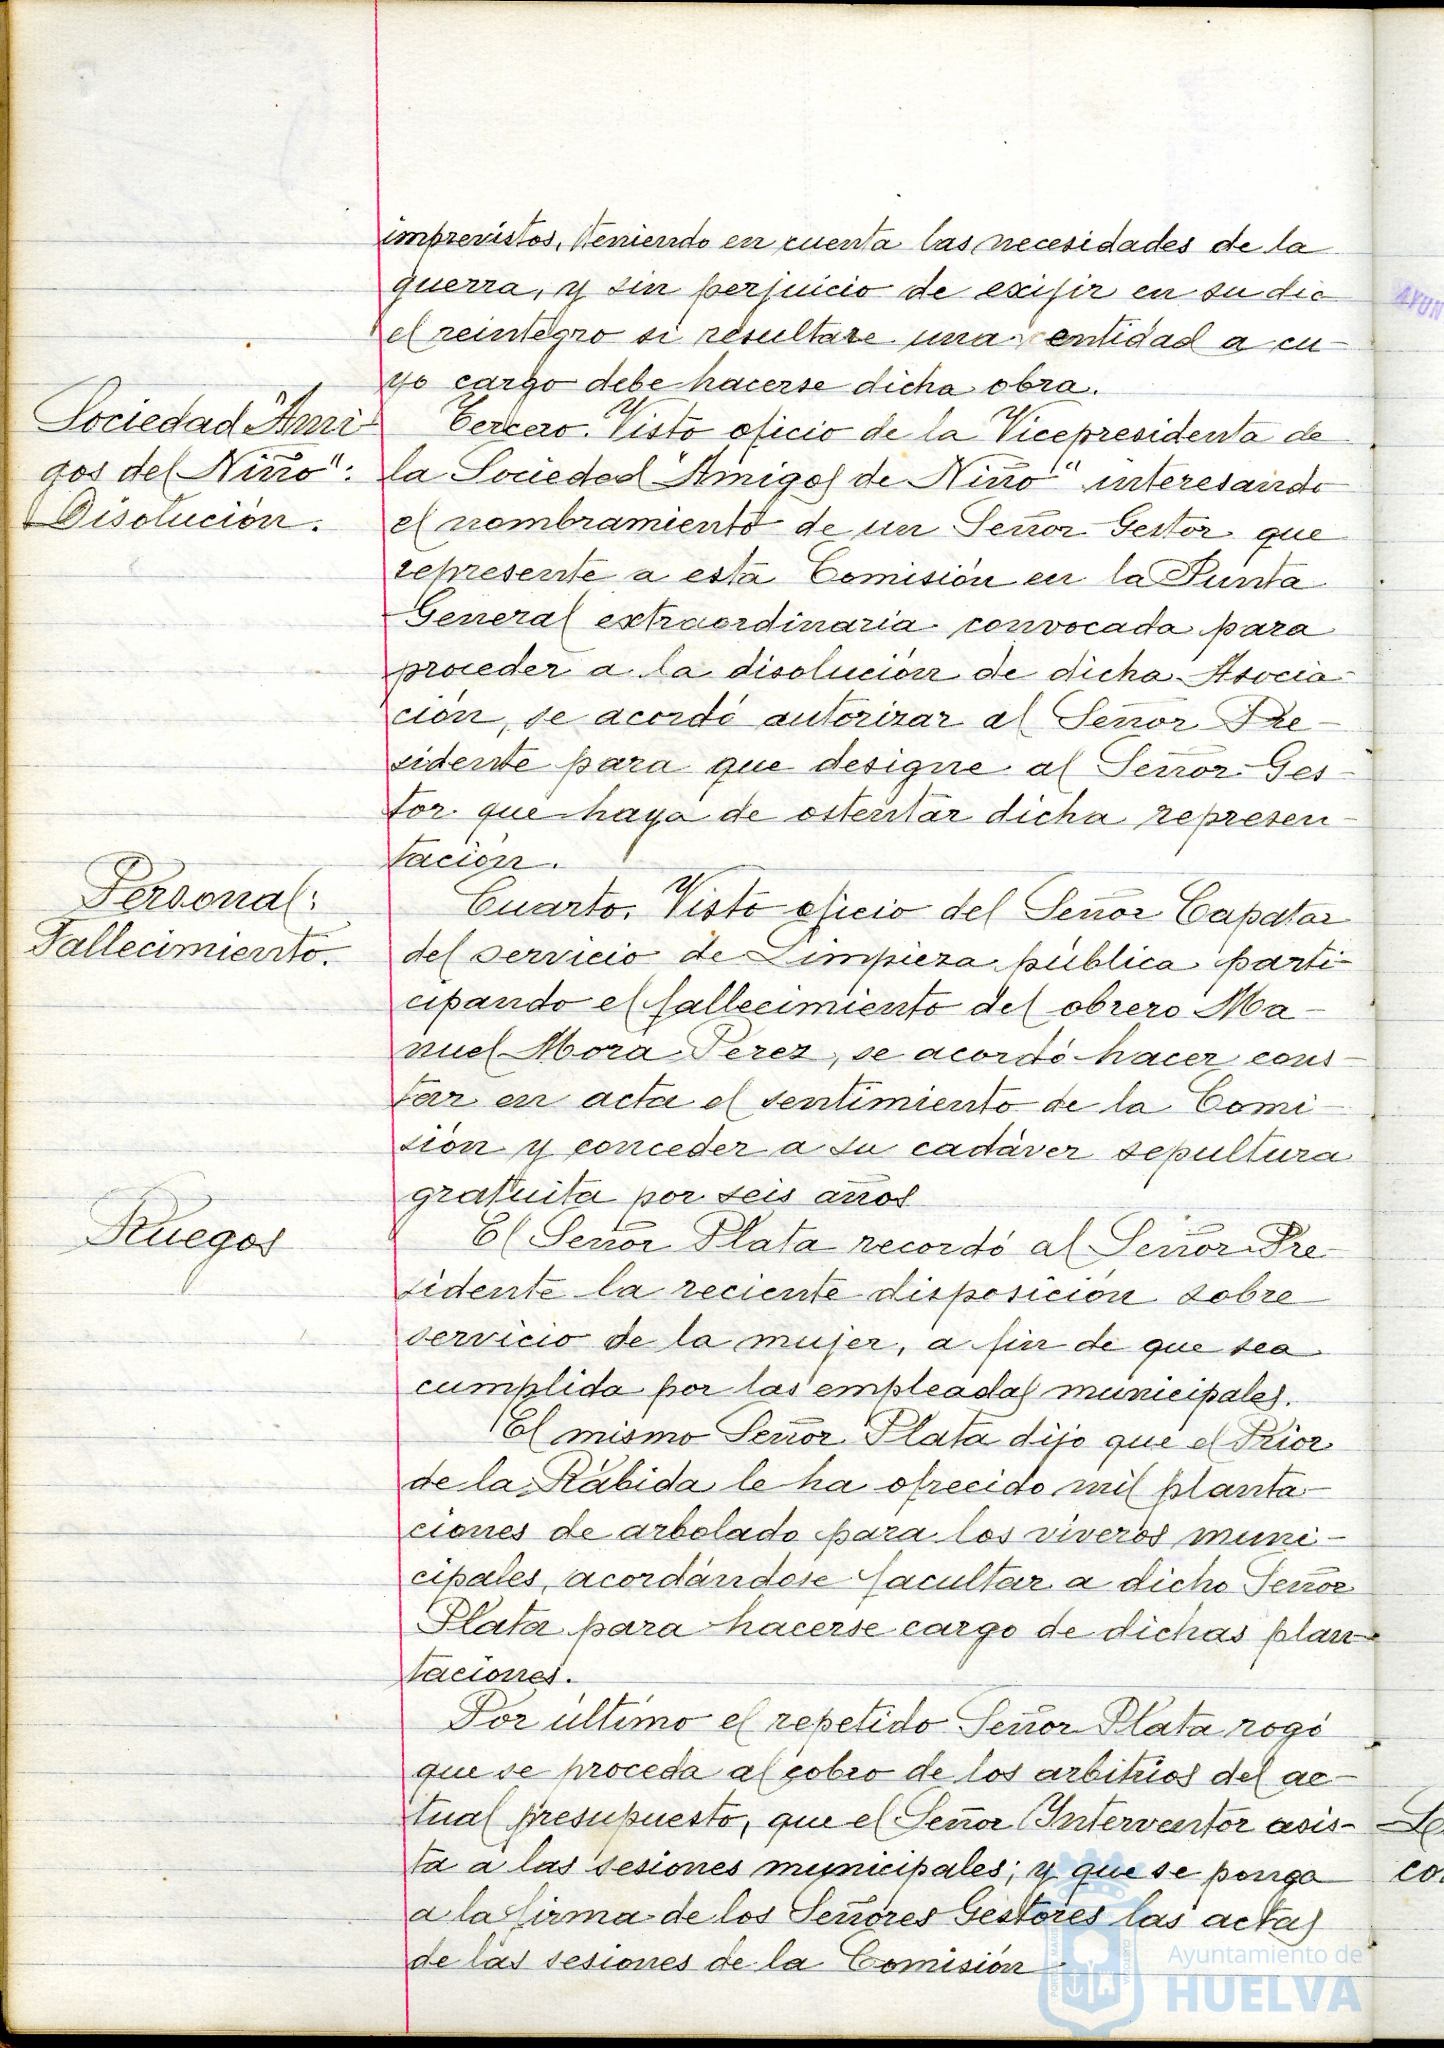 imprevistos, teniendo en cuenta las necesidades de la
guerra, y sin perjuicio de exijir en su dia
el reintegro si resultare una entidad a cu-
yo cargo debe hacerse dicha obra.
Sociedad "Ami-
gos del Niño":
Disolución.
Tercero. Visto oficio de la Vicepresidenta de
la Sociedad "Amigos de Niño" interesando
el nombramiento de un Señor Gestor que
represente a esta Comisión en la Junta
General extraordinaria convocada para
proceder a la disolución de dicha Asocia-
ción, se acordó autorizar al Señor Pre-
sidente para que designe al Señor Ges-
tor que haya de ostentar dicha represen-
tación.
Personal:
Fallecimiento.
Cuarto. Visto oficio del Señor Capataz
del servicio de Limpieza pública parti-
cipando el fallecimiento del obrero Ma-
nuel Mora Perez, se acordó hacer cons-
tar en acta el sentimiento de la Comi-
sión y conceder a su cadáver sepultura
gratuita por seis años
Ruegos
El Señor Plata recordó al Señor Pre-
sidente la reciente disposición sobre
servicio de la mujer, a fin de que sea
cumplida por las empleadas municipales.
El mismo Señor Plata dijo que el Prior
de la Rábida le ha ofrecido mil planta-
ciones de arbolado para los viveros muni-
cipales, acordándose facultar a dicho Señor
Plata para hacerse cargo de dichas plan-
taciones.
Por último el repetido Señor Plata rogó
que se proceda al cobro de los arbitrios del ac-
tual presupuesto, que el Señor Interventor asis-
ta a las sesiones municipales; y que se ponga
a la firma de los Señores Gestores las actas
de las sesiones de la Comisión
AYUN
co.
Ayuntamiento de
HUELVA